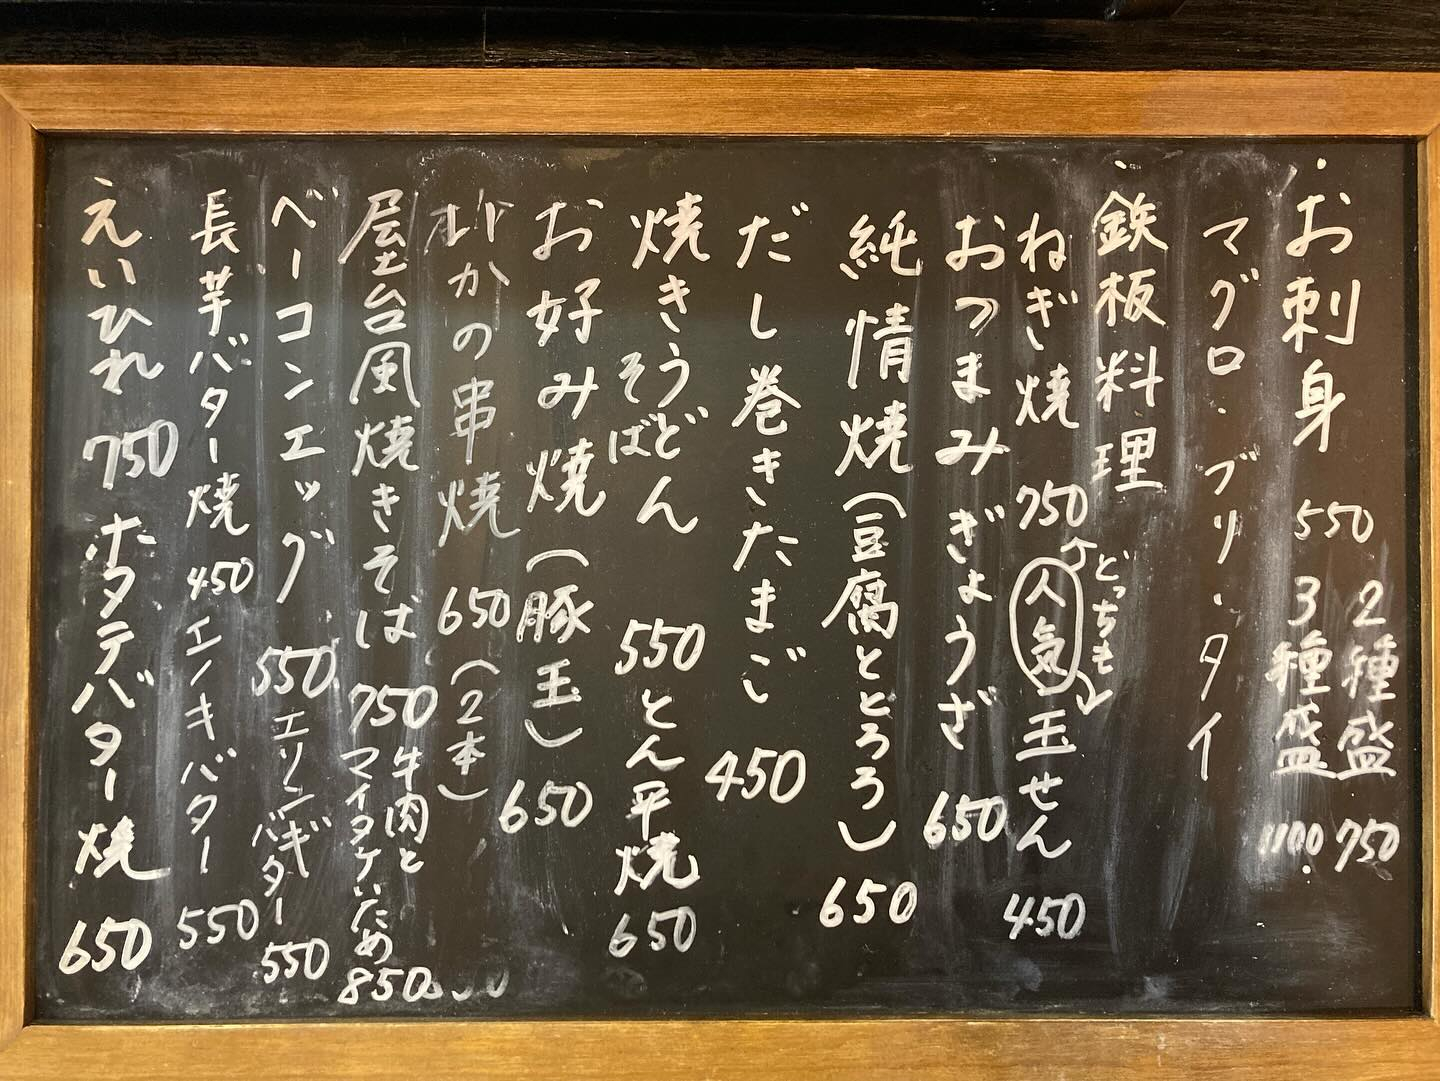 ・お刺身 550 2種盛 750
3種盛 1100
マグロ・ブリ・タイ
・鉄板料理
ねぎ焼 750 人気 玉せん 450
どっちも
おつまみぎょうざ 650
純情焼(豆腐ととろろ) 650
だし巻きたまご 450
焼きうどん 550 とん平焼 650
そば
お好み焼(豚玉) 650
かの串焼 650(2本)
屋台風焼きそば 750 牛肉と
マイタケいため 850
ベーコンエッグ 550 エリンギ
バター 550
長芋バター焼 450 エノキバター 550
えいひれ 750 ホタテバター焼 650